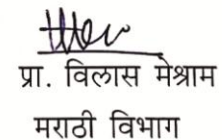 प्रा. विलास मेश्राम
मराठी विभाग